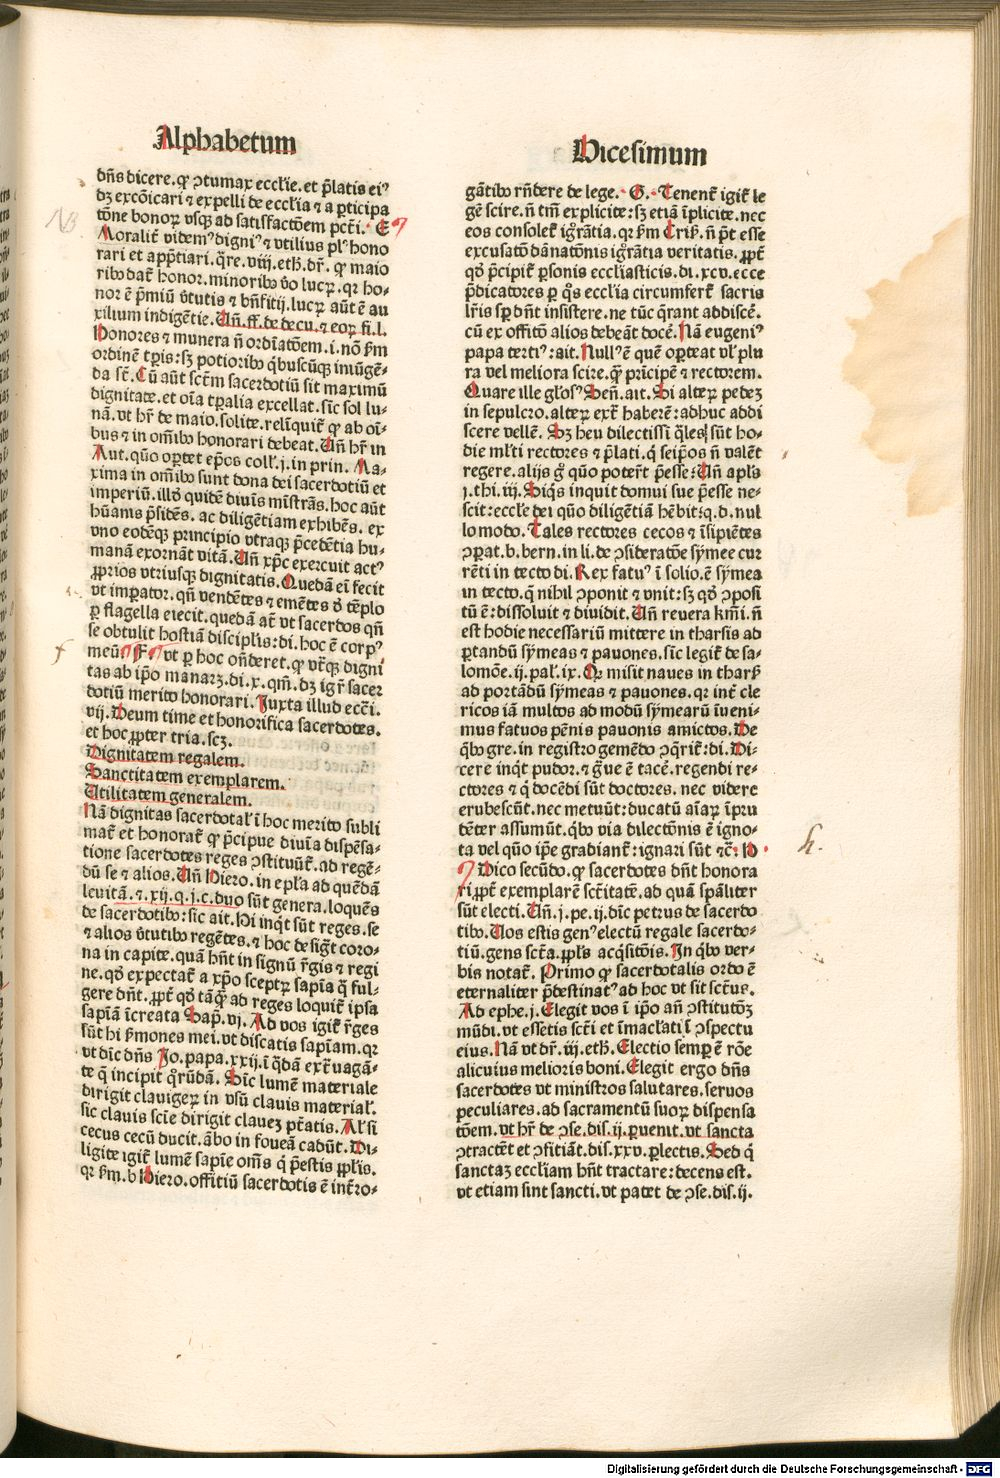 Alphabetum
dñs dicere.qꝫ ↄtumax eccl'ie.et p̃latis ei⁹
dꝫ excõicari ⁊ expelli de eccl'ia ⁊ a ꝑticipa
tõne bonoꝝ vsqꝫ ad satisfactõem pct̃i. E
Moralit̃ videm⁹ digni⁹ ⁊ vtilius pl⁹ hono
rari et app̃tiari.q̃re.viij.eth.dr̃. qꝫ maio
ribꝰ dat̃ honor.minoribꝰ ṽo lucꝝ.qr ho-
nor ẽ p̃miũ ṽtutis ⁊ bñfitij.lucꝝ aũt ẽ au
xilium indigẽtie. Uñ.ff.de decu.⁊ eoꝝ fi.l.
Honores ⁊ munera ñ ordĩatõem.i.nõ ẜm
ordinẽ tp̃is:sꝫ potioribꝰ q̃buscũqꝫ iniũgẽ-
da sc̃t. Cũ aũt sct̃m sacerdotiũ sit maximũ
dignitate.et oĩa tp̃alia excellat.sic̃ sol lu-
nã.vt hr̃ de maio.solite.relĩquit̃ qꝫ ab oĩ-
bus ⁊ in om̃ibꝰ honorari debeat. Uñ hr̃ in
Aut.quõ oꝑtet ep̃os coll'.j.in prin. Ma-
xima in om̃ibꝰ sunt dona dei sacerdotiũ et
imperiũ.illꝰ quidẽ diuĩs mĩstrãs.hoc aũt
hũanis p̃sidẽs. ac diligẽtiam exhibẽs. ex
vno eodẽqꝫ principio vtraqꝫ p̃cedẽtia hu-
manã exornãt vitã. Uñ xp̃c exercuit act⁹
ꝓprios vtriusqꝫ dignitatis. Quedã eĩ fecit
vt imꝑator. qñ vendẽtes ⁊ emẽtes d̃ tẽplo
ꝑ flagella eiecit.quedã at̃ vt sacerdos qñ
se obtulit hostiã discipl'is:di.hoc ẽ corp⁹
meũ. F. vt ꝑ hoc oñderet.qꝫ vtr̃qꝫ digni
tas ab ip̃o manarꝫ.di.x.qm̃.dꝫ igr̃ sacer
dotiũ merito honorari. Juxta illud ecc̃i.
vij. Deum time et honorifica sacerdotes.
et hoc ꝓpter tria.scꝫ.
Dignitatem regalem.
Sanctitatem exemplarem.
Utilitatem generalem.
Nã dignitas sacerdotal' ĩ hoc merito subli
mat̃ et honorat̃ qꝫ p̃cipue diuĩa dispẽsa-
tione sacerdotes reges ↄstituũt̃.ad regẽ-
dũ se ⁊ alios. Uñ Hiero.in ep̃la ad quẽdã
leuitã.⁊.xij.q.j.c.duo sũt genera.loquẽs
de sacerdotibꝰ:sic ait. Hi inq̃t sũt reges.se
⁊ alios ṽtutibꝰ regẽtes.⁊ hoc desig̃t coro-
na in capite.quã hñt in signũ r̃gis ⁊ regi
ne.qd̃ expectat̃ a xp̃o sceptꝝ sapĩa q̃ ful-
gere dñt.ꝓpt̃ qd̃ tãq̃ꝫ ad reges loquit̃ ipsa
sapĩa ĩcreata Sap̃.vj. Ad vos igit̃ r̃ges
sũt hi ẜmones mei.vt discatis sapĩam.qr
vt dic̃ dñs Jo.papa.xxij.ĩ q̃dã ext̃uagã-
te q̃ incipit q̃rũdã. Sic̃ lumẽ materiale
dirigit clauigeꝝ in vsũ clauis material'.
sic clauis scĩe dirigit claueꝫ ptãtis. Al' si
cecus cecũ ducit.ãbo in foueã cadũt. Di-
ligite igit̃ lumẽ sapĩe om̃s q̃ p̃estis ꝓpl'is.
qr ẜm.b Hiero.offitiũ sacerdotis ẽ int̃ro-
Vicesimum
gãtibꝰ rñdere de lege. G. Tenent̃ igit̃ le
gẽ scire.ñ tm̃ explicite:sꝫ etiã ĩplicite.nec
eos consolet̃ igr̃ãtia.qr ẜm Crisꝰ. ñ p̃t esse
excusatõ dãnatõnis igr̃ãtia veritatis.ꝓpt̃
qd̃ p̃cipit̃ ꝑsonis eccl'iasticis.di.xcv.ecce
p̃dicatores ꝑ q̃s eccl'ia circumfert̃ sacris
lr̃is sꝑ dñt insistere.ne tũc q̃rant addiscẽ.
cũ ex offitõ alios debeãt docẽ. Nã eugeni⁹
papa terti⁹:ait. Null⁹ ẽ quẽ oꝑteat vl' plu
ra vel meliora scire.q̃ꝫ prĩcipẽ ⁊ rectorem.
Quare ille glõs⁹ Señ.ait. Si alteꝝ pedeꝫ
in sepulcro.alteꝝ ext̃ haberẽ:adhuc addi
scere vellẽ. Sꝫ heu dilectissĩ q̃les sũt ho-
die ml'ti rectores ⁊ p̃lati.q̃ seip̃os ñ valẽt
regere.alijs g̃ quõ poter̃t p̃esse: Uñ apl's
j.thi.iij. Siq̃s inquit domui sue p̃esse ne-
scit:eccl'e dei quõ diligẽtiã hẽbit:q.d.nul
lo modo. Tales rectores cecos ⁊ ĩsipiẽtes
ↄꝑat.b.bern.in li.de ↄsideratõe sỹmee cur
rẽti in tecto di. Rex fatu⁹ ĩ solio.ẽ sỹmea
in tecto.q̃ nihil ↄponit ⁊ vnit:sꝫ qd̃ ↄposi
tũ ẽ:dissoluit ⁊ diuidit. Uñ reuera ẜm.i.ñ
est hodie necessariũ mittere in tharsis ad
ꝑtandũ sỹmeas ⁊ pauones.sic̃ legit̃ de sa-
lomõe.ij.pal'.ix. Qꝫ misit naues in tharẜ
ad portãdũ sỹmeas ⁊ pauones.qr int̃ cle
ricos iã multos ad modũ sỹmearũ ĩueni-
mus fatuos pẽnis pauonis amictos. De
q̃bꝰ gre.in registro gemẽdo ↄq̃rit̃:di. Di-
cere inq̃t pudor.⁊ g̃ue ẽ tacẽ.regendi re-
ctores ⁊ q̃ docẽdi sũt doctores. nec videre
erubescũt.nec metuũt:ducatũ aĩaꝝ ĩpru
dẽter assumũt.q̃bꝰ via dilectõnis ẽ igno-
ta vel quõ ip̃e gradiant̃:ignari sũt ⁊c̃. H
Dico secũdo.qꝫ sacerdotes dñt honora
ri ꝓpt̃ exemplarẽ sct̃itatẽ.ad quã spãliter
sũt electi. Uñ.j.pe.ij.dic̃ petrus de sacerdo
tibꝰ. Uos estis gen⁹ electũ regale sacerdo-
tiũ.gens sct̃a.ppl's acq̃sitõis. Jn q̃bꝰ ver-
bis notat̃. Primo qꝫ sacerdotalis ordo ẽ
eternaliter p̃destinat⁹ ad hoc vt sit sct̃us.
Ad ephe.j. Elegit vos ĩ ip̃o añ ↄstitutõꝫ
mũdi.vt essetis sct̃i et ĩmacl'ati ĩ ↄspectu
eius. Nã vt dr̃.iij.eth. Electio semꝑ ẽ rõe
alicuius melioris boni. Elegit ergo dñs
sacerdotes vt ministros salutares.seruos
peculiares.ad sacramentũ suoꝝ dispensa
tõem.vt hr̃ de ↄse.dis.ij.ꝑuenit.vt sancta
ↄtractẽt et ↄfitiãt.dis.xxv.ꝑlectis. Sed q̃
sanctaꝫ eccl'iam hñt tractare:decens est.
vt etiam sint sancti.vt patet de ↄse.dis.ij.
NB
f
h.
Digitalisierung gefördert durch die Deutsche Forschungsgemeinschaft - DFG